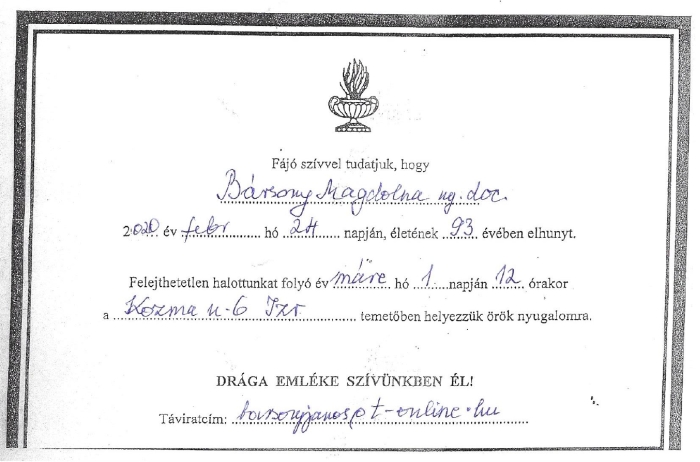 Fájó szívvel tudatjuk, hogy
Bársony Magdolna ny. doc.
2020 év febr hó 24 napján, életének 93 évében elhunyt.
Felejthetetlen halottunkat folyó év márc hó 1 napján 12 órakor
a Kozma u. 6 Izr temetőben helyezzük örök nyugalomra.
DRÁGA EMLÉKE SZÍVÜNKBEN ÉL!
Táviratcím: barsonyjanos@t-online.hu